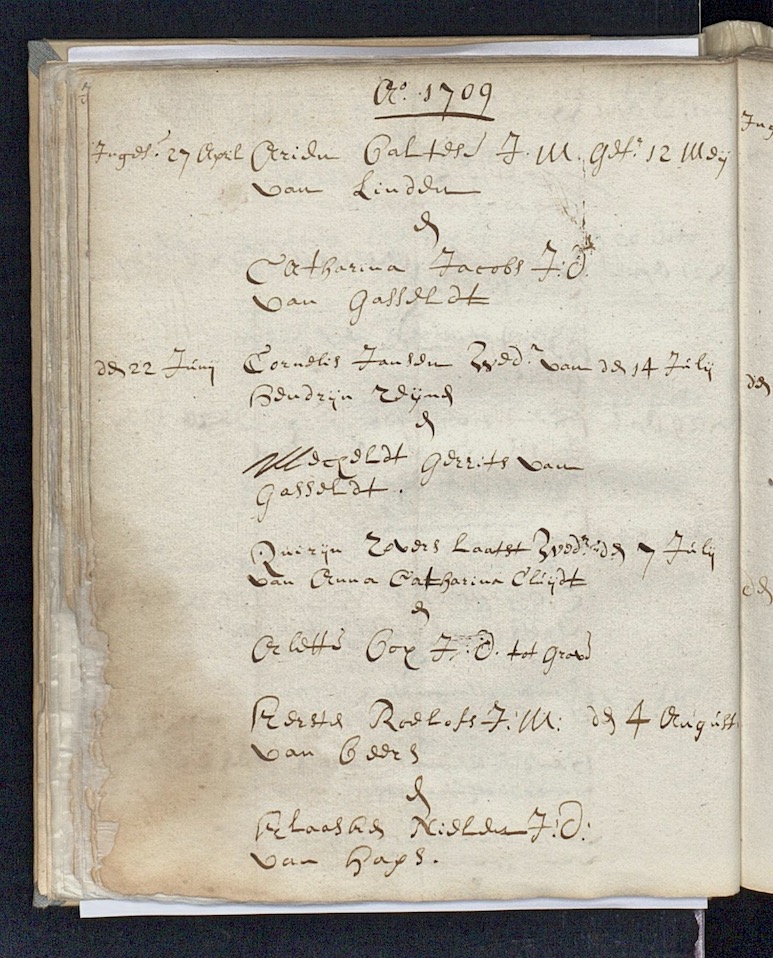 Ao. 1709
Ingesr. 27 April Arien Baltess J. M. Getr. 12 Meij
van Linden
en
Catharina Jacobs J: D:
van Gasseldt
den 22 Junij Cornelis Jansen Wedr. van den 14 Julij
Hendrijn
en
Mecheldt Gerrits van
Gasseldt.
Quirijn Zvers Laatst Wedr. den 7 Julij
van Anna Catharina Cluijdt
en
Arlette Box J: D. tot Grave
Kersten Roelofs J: M: den 4 August
van Beers
en
Klaasken Nielen J: D:
van Haps.